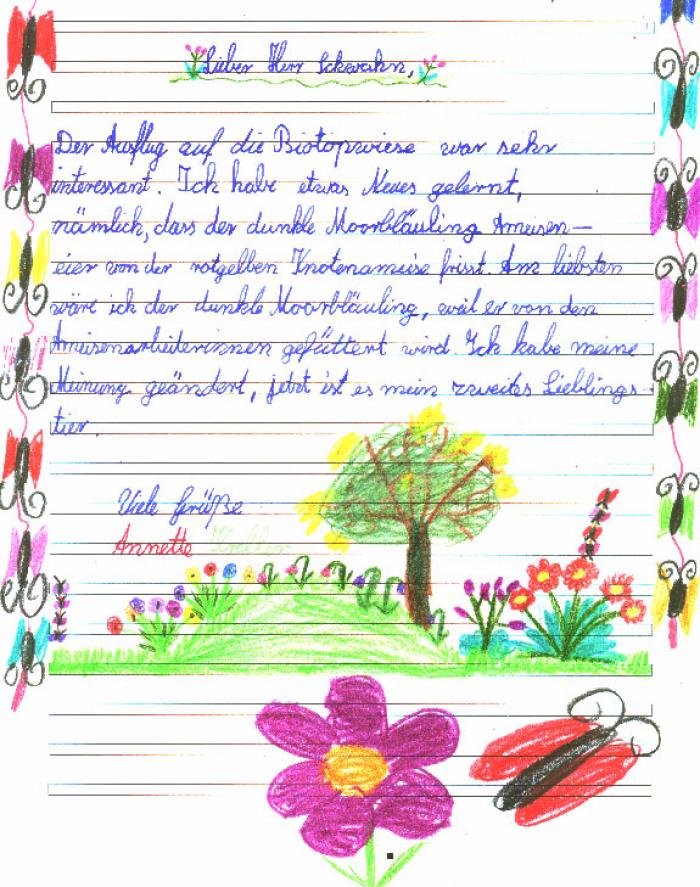 Lieber Herr Schwahn,
Der Ausflug auf die Biotopwiese war sehr
interessant. Ich habe etwas Neues gelernt,
nämlich, dass der dunkle Moorbläuling Ameisen-
eier von der rotgelben Knotenameise frisst. Am liebsten
wäre ich der dunkle Moorbläuling, weil er von den
Ameisenarbeiterinnen gefüttert wird. Ich habe meine
Meinung geändert, jetzt ist es mein zweites Lieblings-
tier.
Viele Grüße
Annette